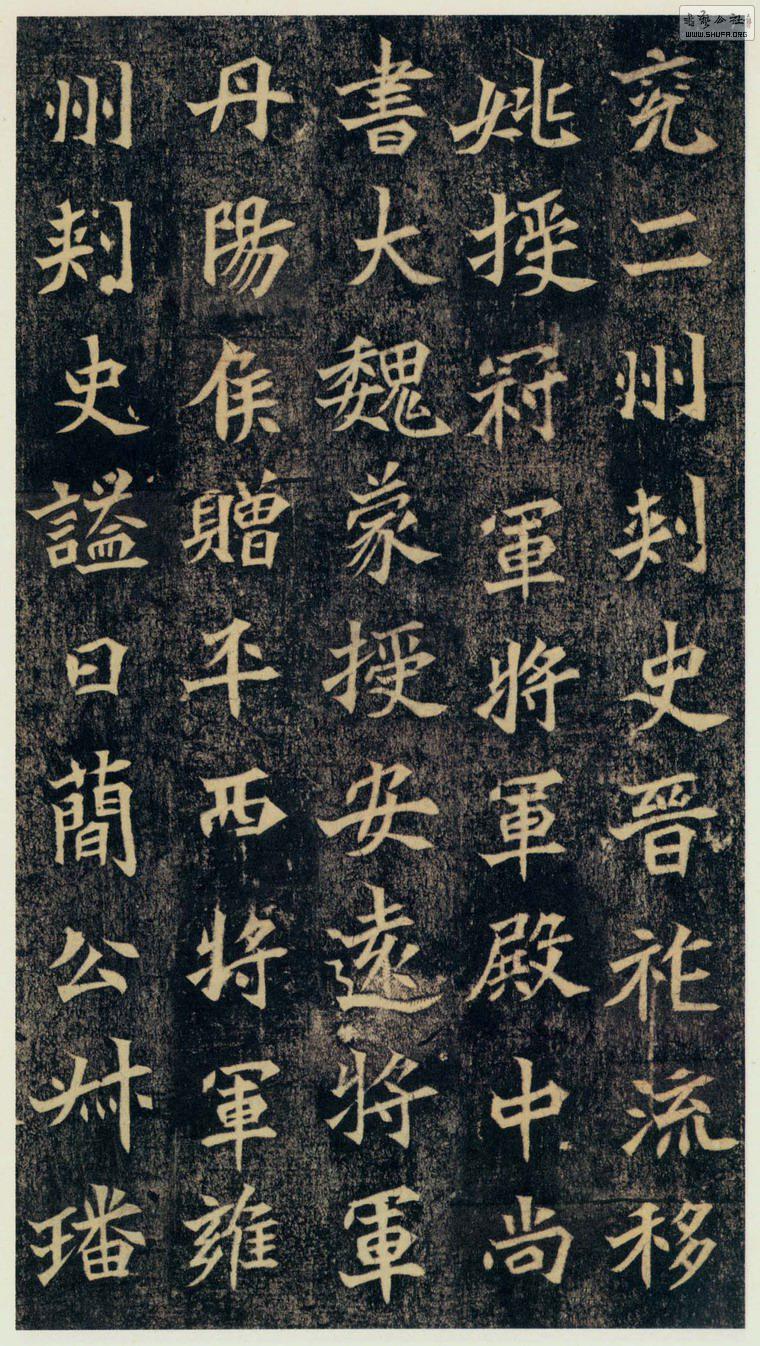 兖二州刺史晉祚流移
姚授冠軍將軍殿中尚
書大魏蒙授安遠將軍
丹陽侯贈平西將軍雍
州刺史謚曰蕳公叔璠
WWW.SHUFA.ORG